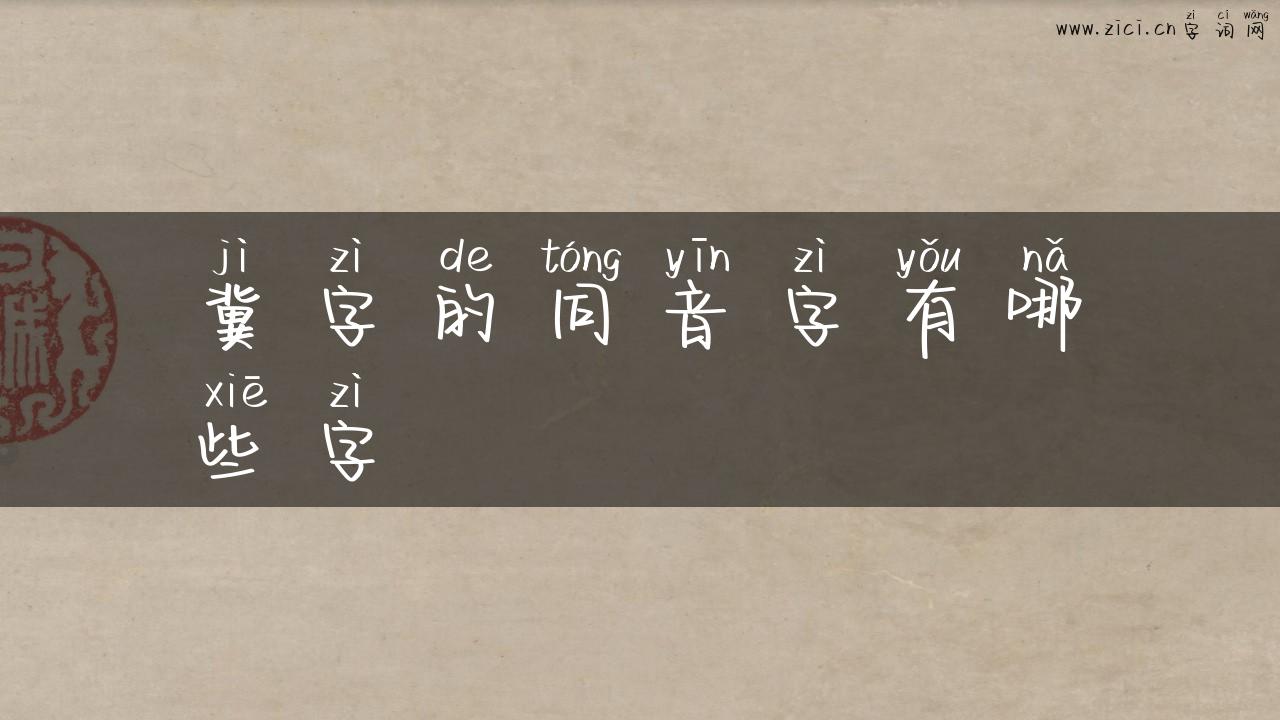 zì cí wǎng
www.zici.cn 字词网
jì zì de tóng yīn zì yǒu nǎ
冀字的同音字有哪
xiē zì
些字